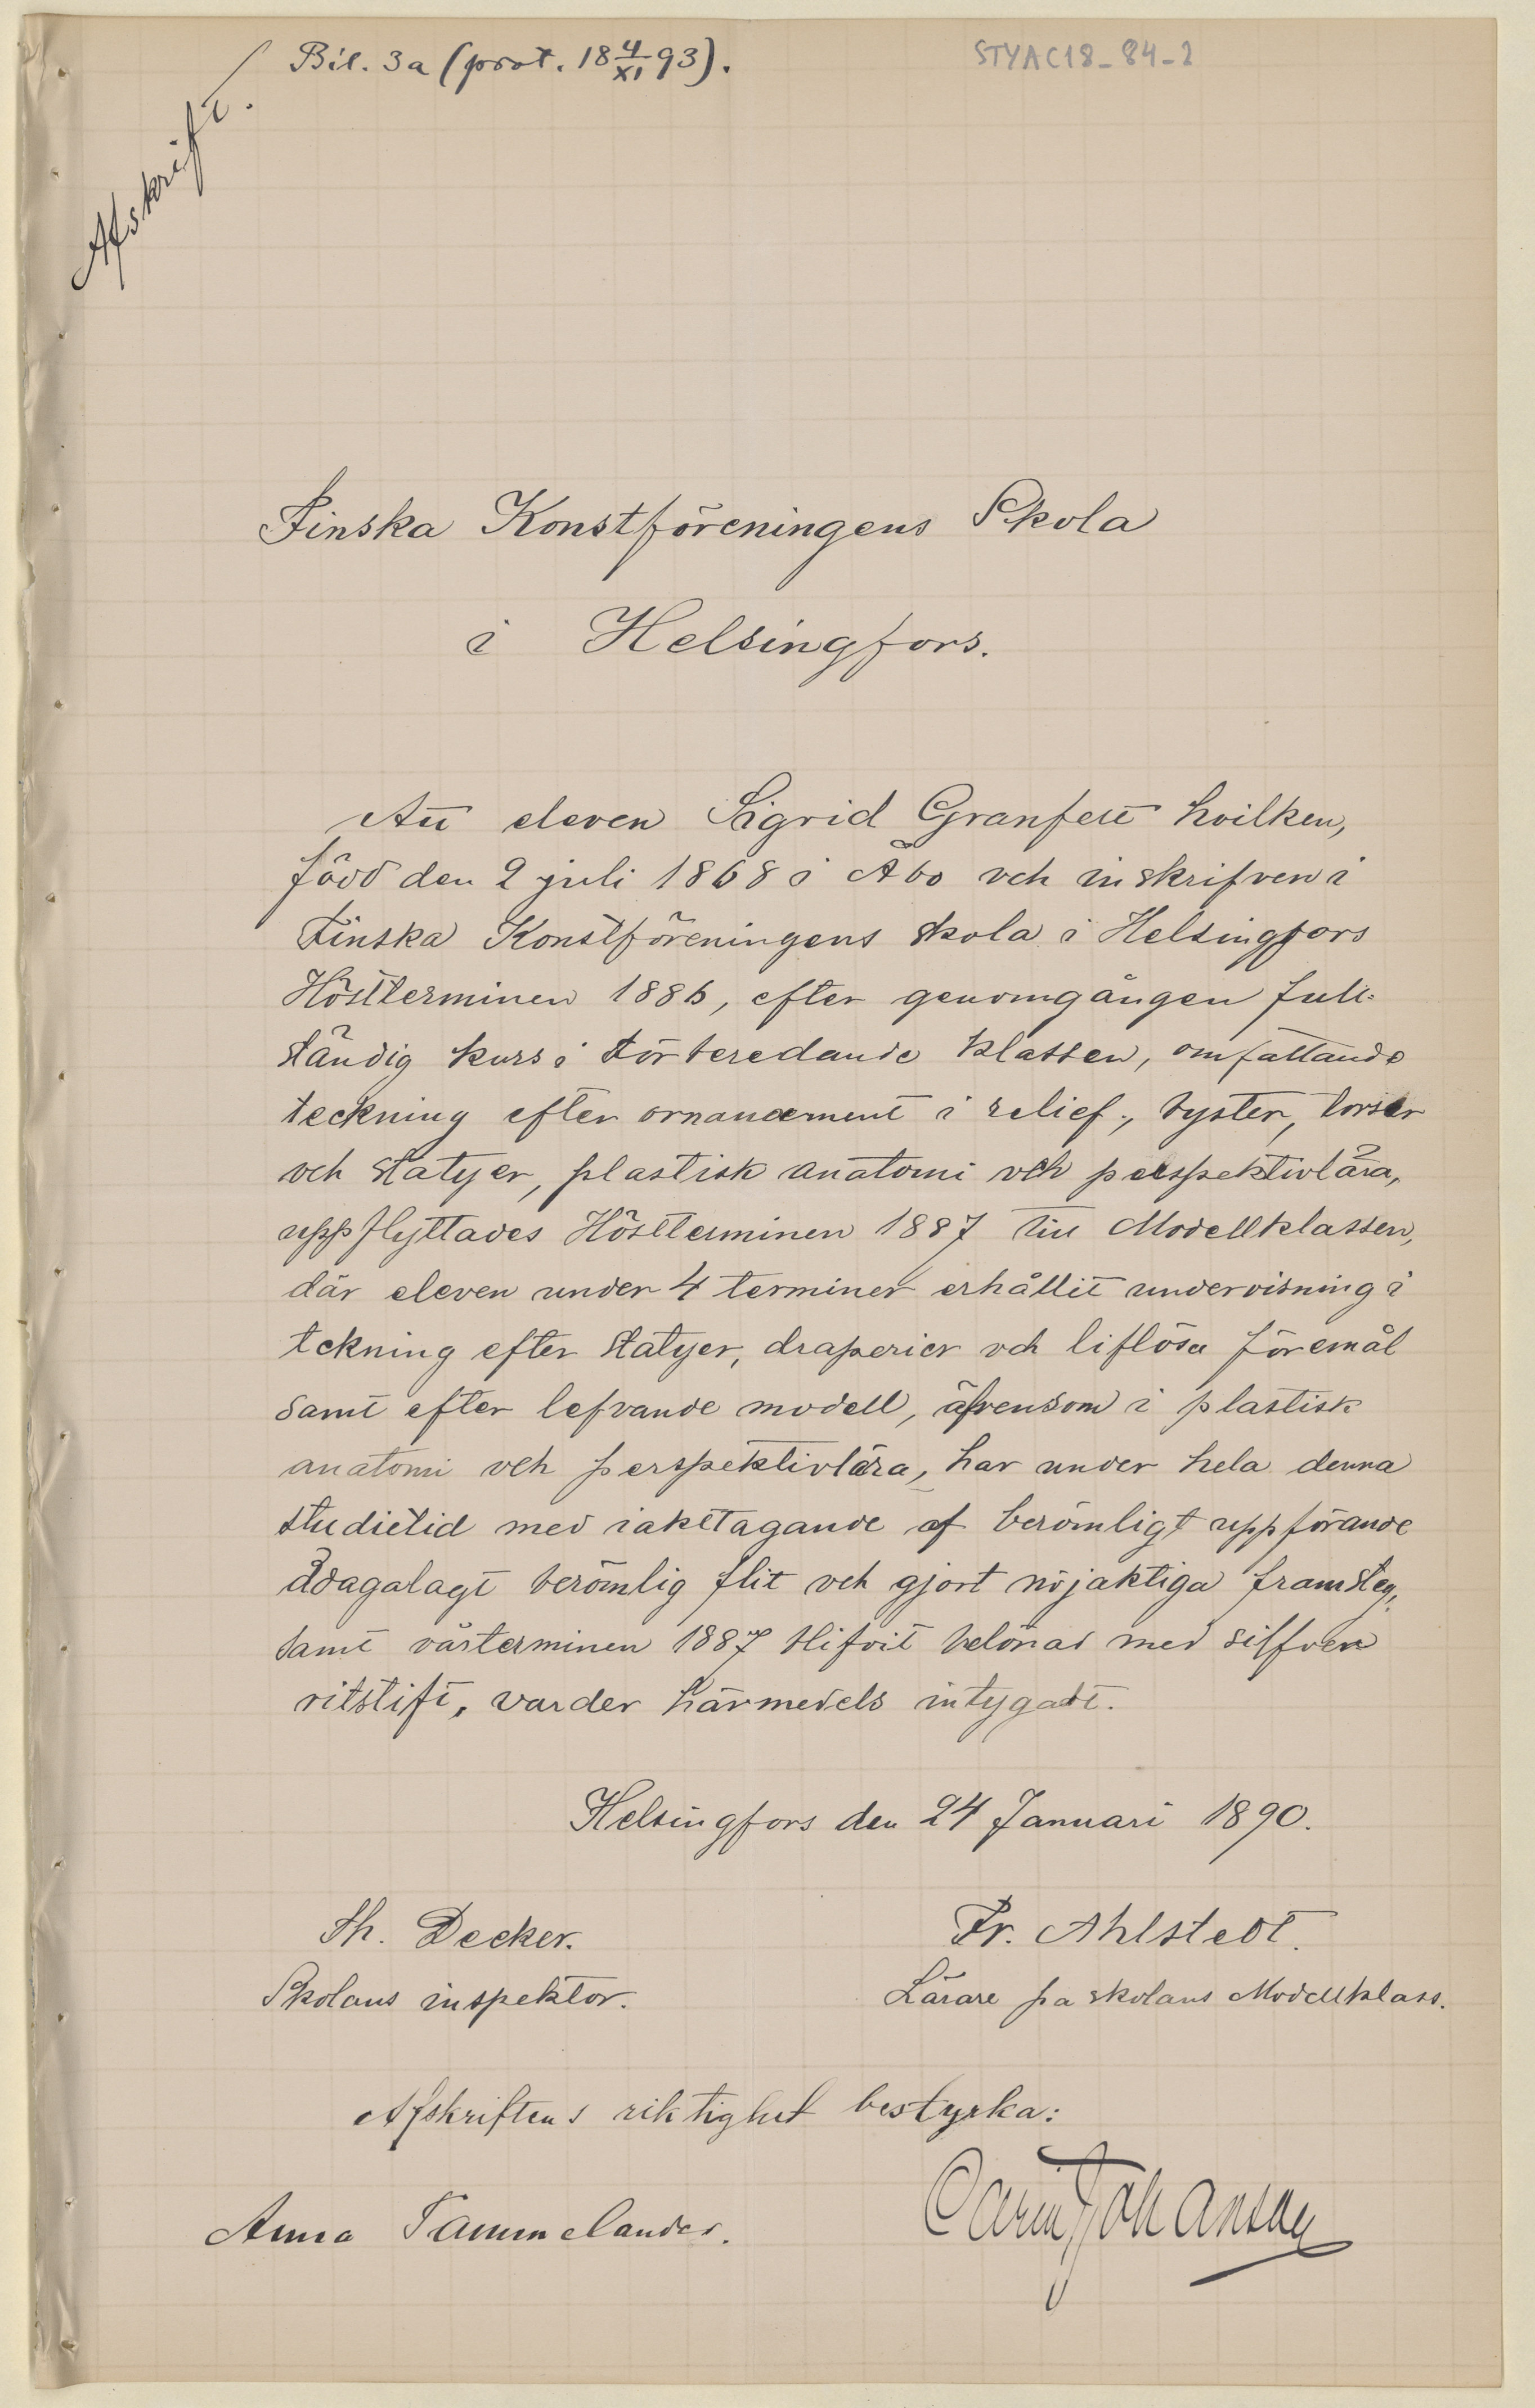 Bil. 3a (prot. 18 4/XI 93).
STYAC18-84-2
Afskrift.
Finska Konstföreningens Skola
i Helsingfors.
Att eleven Sigrid Granfelt hvilken,
född den 2 juli 1868 i Åbo och inskrifven i
Finska Konstföreningens skola i Helsingfors
Höstterminen 1886, efter genomgången full-
ständig kurs i Förberedande klassen, omfattande
teckning efter ornamement i relief, byster, torser
och statyer, plastisk anatomi och perspektivlära,
uppflyttades Höstterminen 1887 till Modellklassen,
där eleven under 4 terminer erhållit undervisning i
teckning efter statyer, draperier och liflösa föremål
samt efter lefvande modell, äfvensom i plastisk
anatomi och perspektivlära, har under hela denna
studietid med iakttagande af berömligt uppförande
ådagalagt berömlig flit och gjort nöjaktiga framsteg,
samt vårterminen 1887 blifvit belönad med silfver
ritstift, varder härmedels intygadt.
Helsingfors den 24 Januari 1890.
Th. Decker. Fr. Ahlstedt.
Skolans inspektor. Lärare pa skolans Modellklass.
Afskriftens riktighet bestyrka:
Anna Tammelander. Carin Johansson